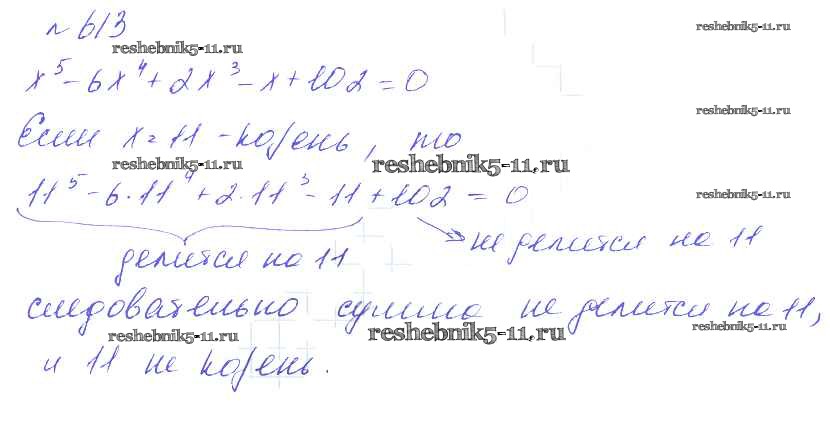 № 613
reshebnik5-11.ru
reshebnik5-11.ru
x⁵ - 6x⁴ + 2x³ - x + 102 = 0
reshebnik5-11.ru
Если x = 11 - корень, то
reshebnik5-11.ru
reshebnik5-11.ru
11⁵ - 6·11⁴ + 2·11³ - 11 + 102 = 0
reshebnik5-11.ru
делится на 11
не делится на 11
следовательно сумма не делится на 11,
reshebnik5-11.ru
reshebnik5-11.ru
reshebnik5-11.ru
и 11 не корень.